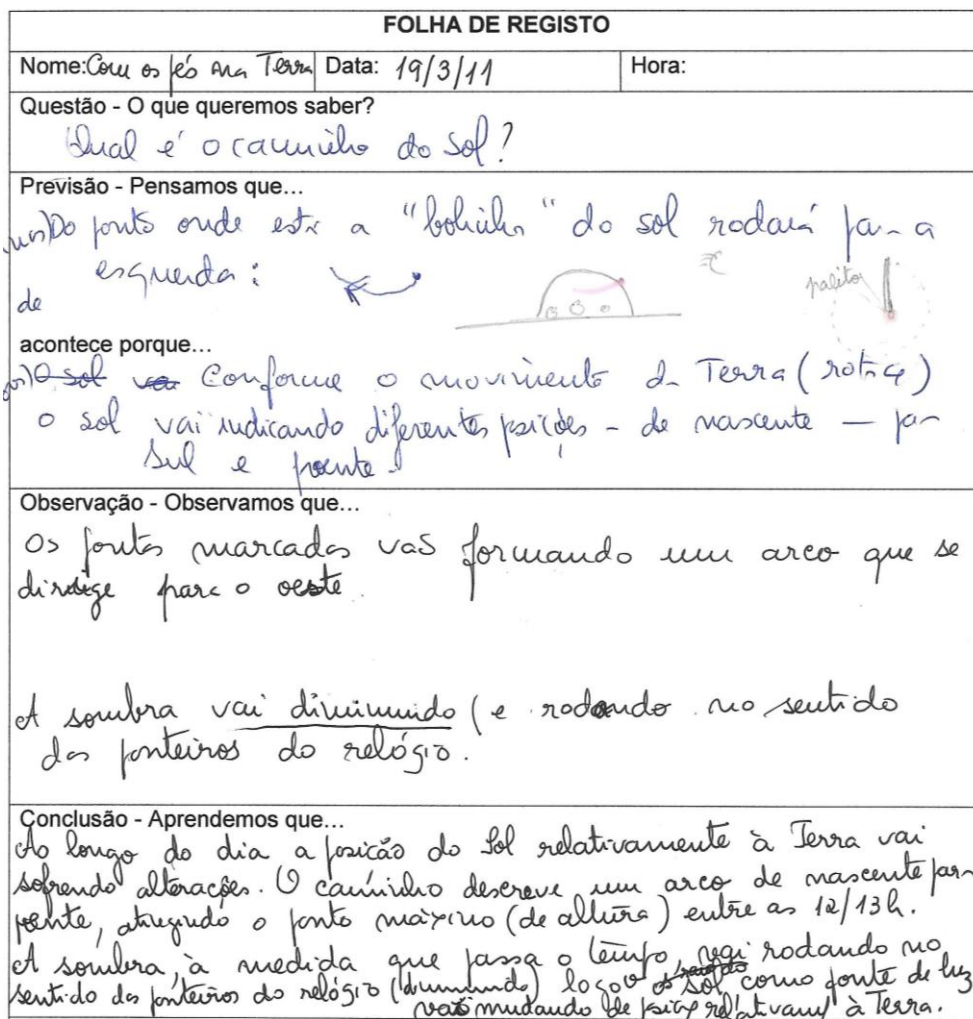 FOLHA DE REGISTO
Nome: Com os pés na Terra Data: 19/3/11 Hora:
Questão - O que queremos saber?
Qual é o caminho do sol?
Previsão - Pensamos que...
Do ponto onde está a "bolinha" do sol rodará para a
esquerda:
palito
de
acontece porque...
O sol vai Conforme o movimento da Terra (rotação)
o sol vai indicando diferentes posições - de nascente - para
sul e poente.
Observação - Observamos que...
Os pontos marcados vão formando um arco que se
dirige para o oeste.
A sombra vai diminuindo (e rodando no sentido
dos ponteiros do relógio.
Conclusão - Aprendemos que...
Ao longo do dia a posição do Sol relativamente à Terra vai
sofrendo alterações. O caminho descreve um arco de nascente para
poente, atingindo o ponto máximo (de altura) entre as 12/13h.
A sombra, à medida que passa o tempo, vai rodando no
sentido dos ponteiros do relógio (diminuindo) logo o sol como fonte de luz
vai mudando de posição relativam/ à Terra.